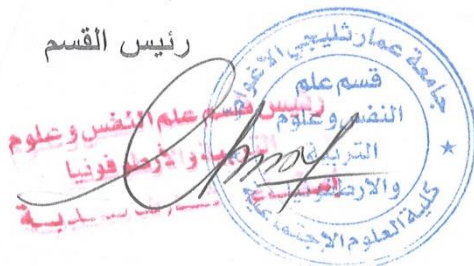 رئيس القسم
جامعة عمار ثليجي الاغواط
قسم علم
النفس وعلوم
التربية
والارطفونيا
كلية العلوم الإجتماعية
رئيس قسم علم النفس وعلوم
التربية والأرطفونيا